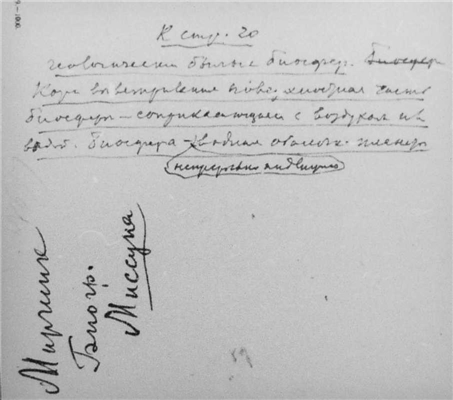 К стр. 20
геологически былые биосфер. Биосфера
Кора выветривания поверхностная часть
биосферы – соприкасающаяся с воздухом и в
водой. Биосфера – оболочка планеты
непрерывно
Мирчинк
Биогр.
Миссуна